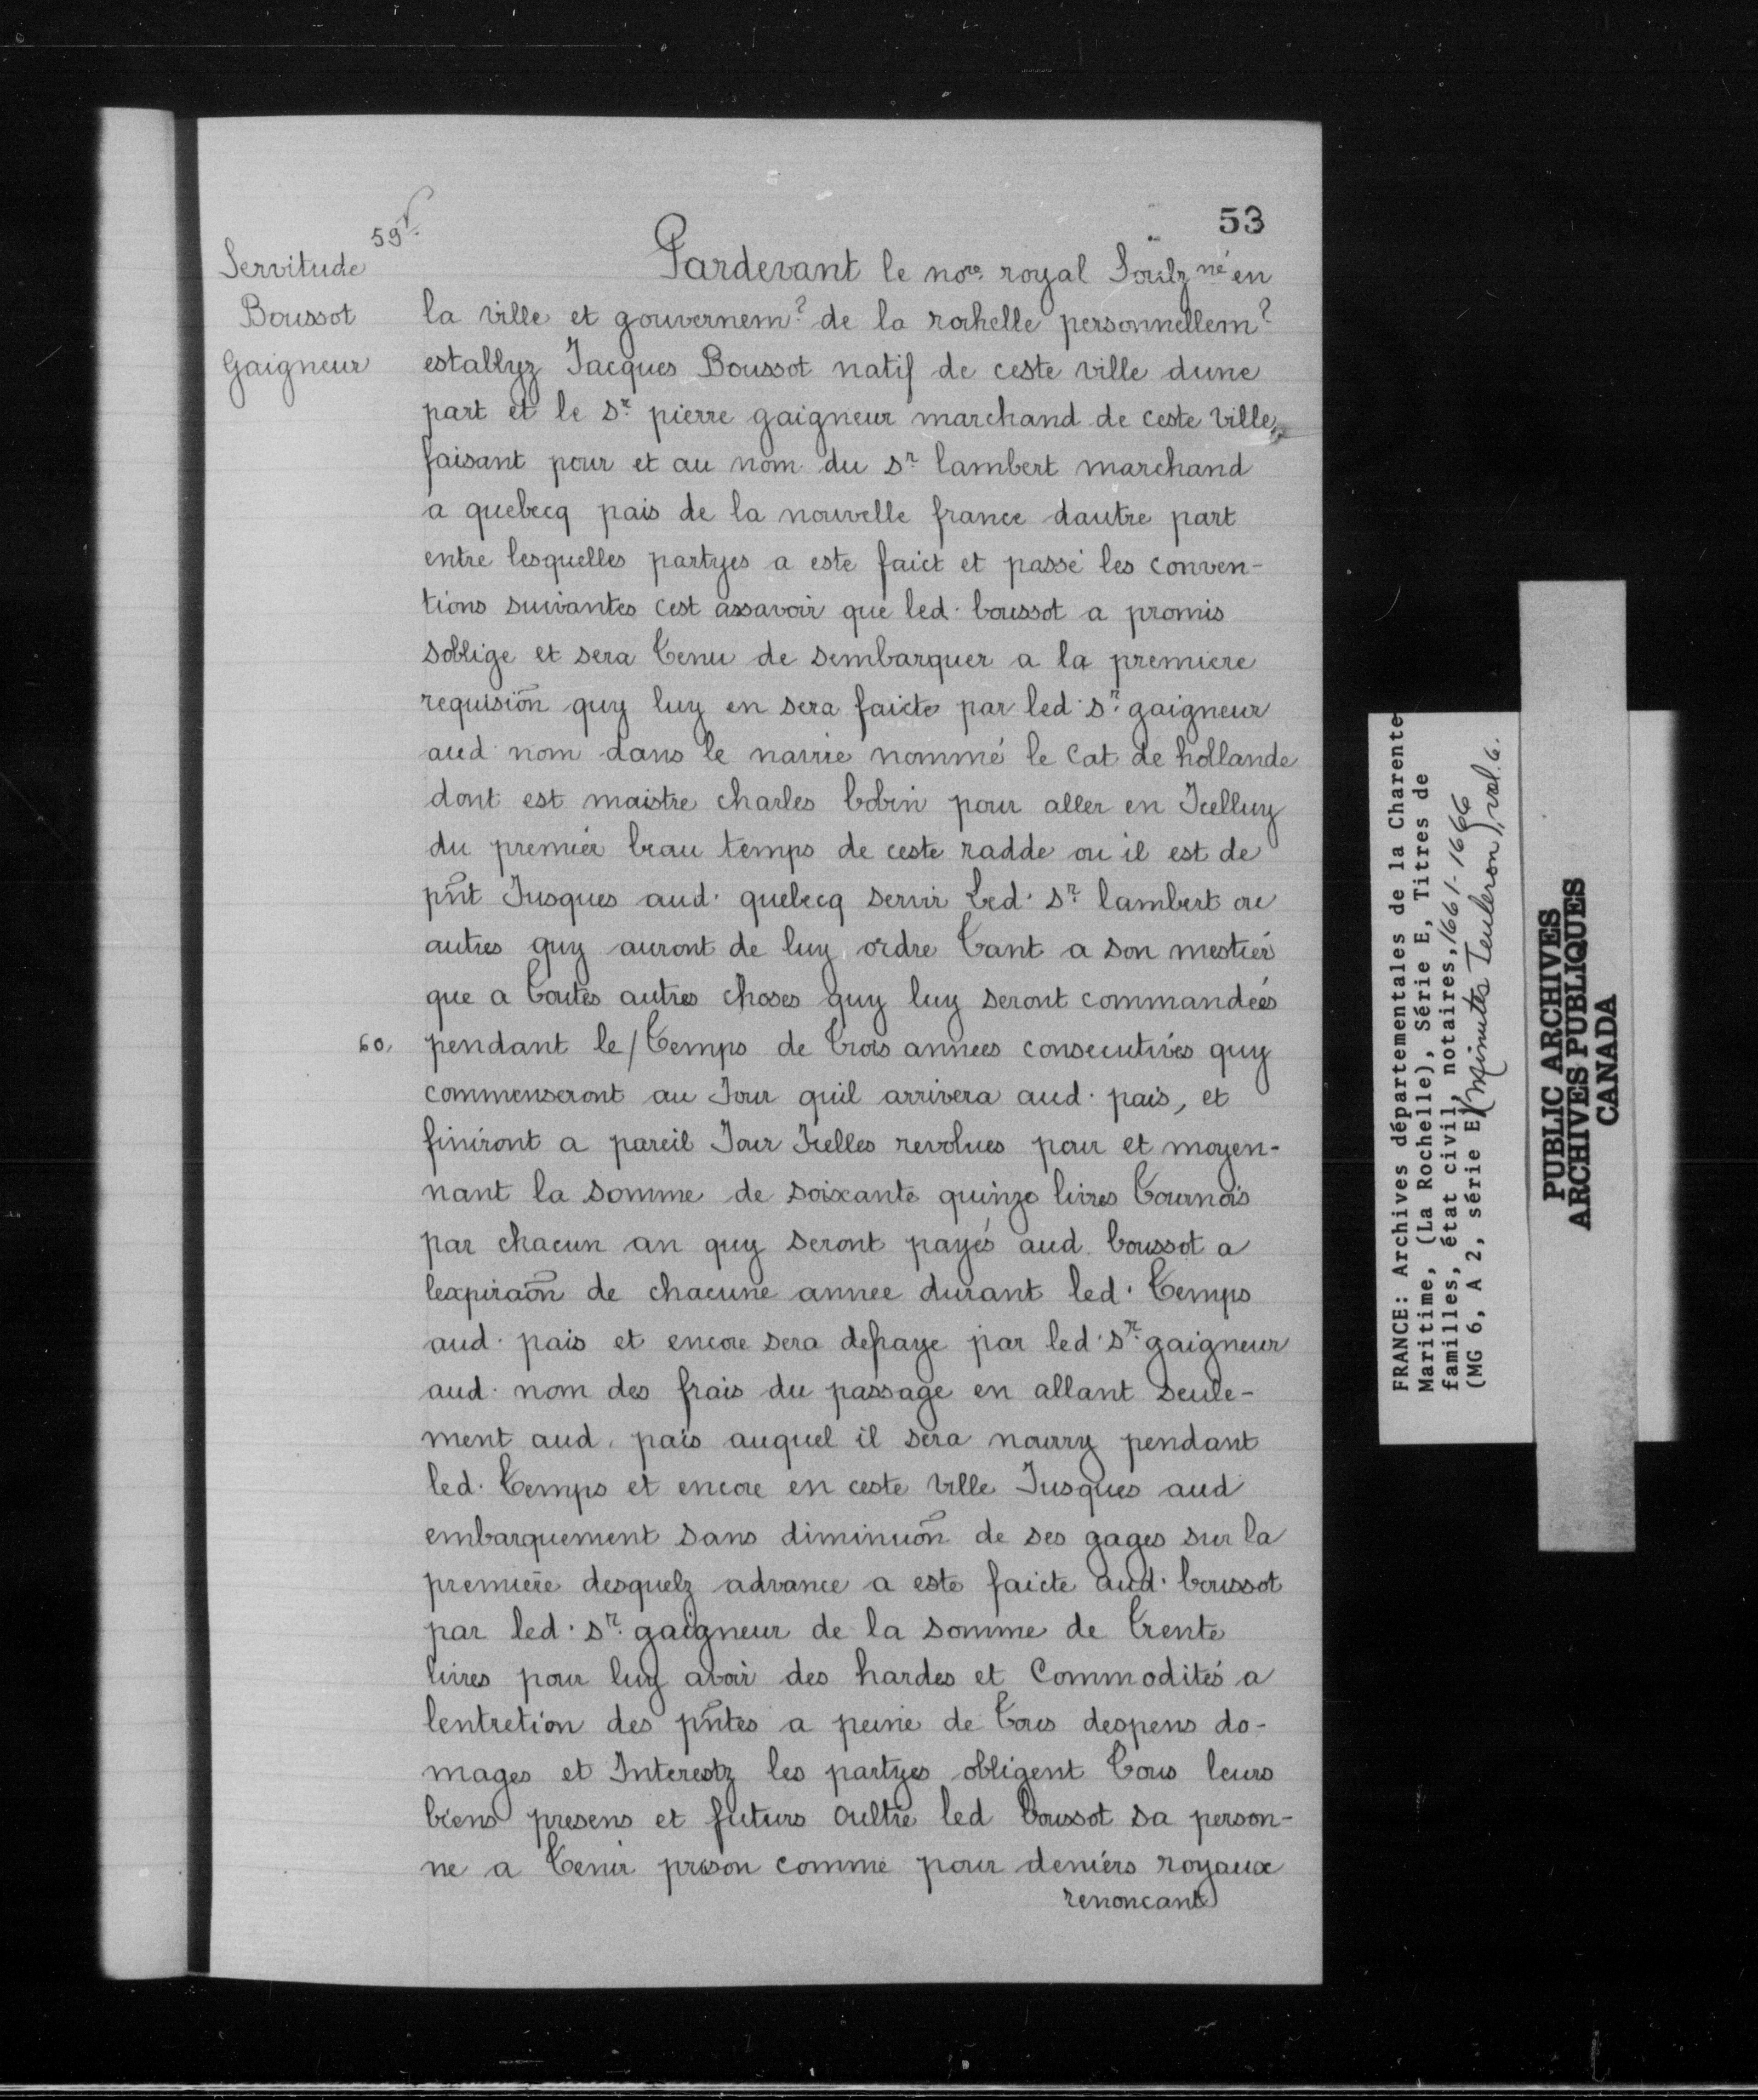 53
59v.
Servitude
Boussot
Gaigneur
Pardevant le nore. royal Soulz né en
la ville et gouvernemt. de la rochelle personnellemt.
establyz Jacques Boussot natif de ceste ville dune
part et le sr. pierre gaigneur marchand de ceste ville,
faisant pour et au nom du sr. lambert marchand
a quebecq pais de la nouvelle france dautre part
entre lesquelles partyes a este faict et passé les conven-
tions suivantes cest assavoir que led. boussot a promis
soblige et sera tenu de sembarquer a la premiere
requisiõn quy luy en sera faicte par led. sr. gaigneur
aud nom dans le navire nommé le Cat de hollande
dont est maistre charles bobin pour aller en Icelluy
du premier beau temps de ceste radde ou il est de
pñt Jusques aud. quebecq servir led. sr. lambert ou
autres quy auront de luy ordre tant a son mestier
que a toutes autres choses quy luy seront commandées
60. pendant le / temps de trois annees consecutives quy
commenseront au Jour quil arrivera aud. pais, et
finiront a pareil Jour Icelles revolues pour et moyen-
nant la somme de soixante quinze livres tournois
par chacun an quy seront payés aud. boussot a
lexpiraõn de chacune annee durant led. temps
aud. pais et encore sera defraye par led. sr. gaigneur
aud. nom des frais du passage en allant seule-
ment aud. pais auquel il sera nourry pendant
led. temps et encore en ceste ville Jusques aud
embarquement sans diminuõn de ses gages sur la
premiere desquelz advance a este faicte aud. boussot
par led. sr. gaigneur de la somme de trente
livres pour luy avoir des hardes et Commodités a
lentretion des pñtes a peine de tous despens do-
mages et Interestz les partyes obligent tous leurs
biens presens et futurs oultre led boussot sa person-
ne a tenir prison comme pour deniers royaux
renoncant
FRANCE: Archives départementales de la Charente
Maritime, (La Rochelle), Série E, Titres de
familles, état civil, notaires, 1661-1666
(MG 6, A 2, série E) (Minutes Teuleron), vol. 6.
PUBLIC ARCHIVES
ARCHIVES PUBLIQUES
CANADA